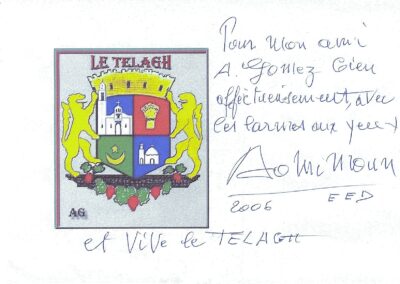 LE TELAGH
AG
Pour mon ami
A. Gomez
affectueusement avec
les larmes aux yeux
2006 EED
et Vive le TELAGH